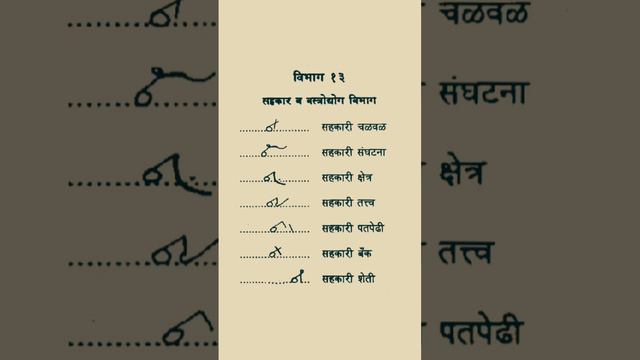 विभाग १३
सहकार व वस्त्रोद्योग विभाग
सहकारी चळवळ
सहकारी संघटना
सहकारी क्षेत्र
सहकारी तत्त्व
सहकारी पतपेढी
सहकारी बँक
सहकारी शेती
चळवळ
संघटना
क्षेत्र
तत्त्व
पतपेढी